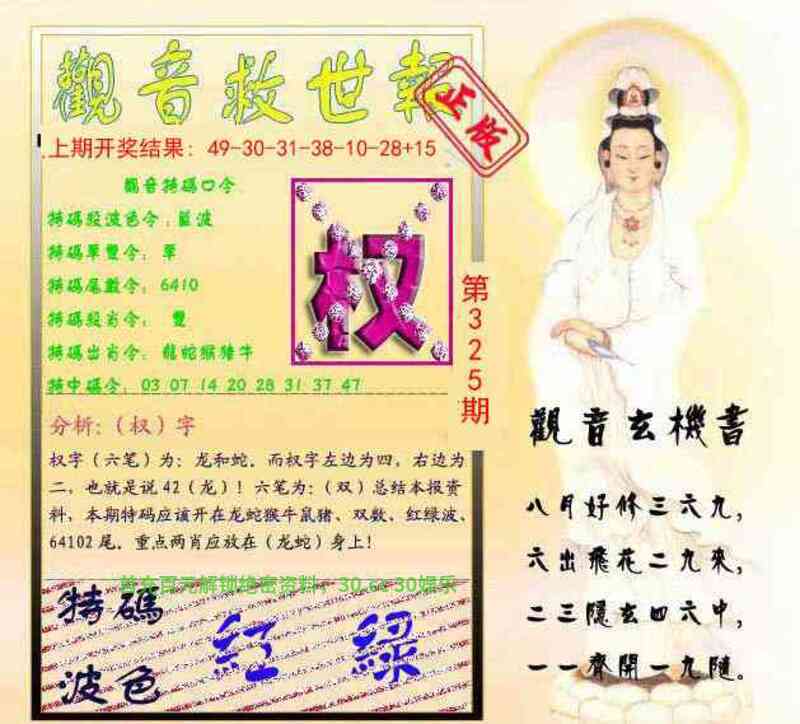 觀音救世報
正版
上期开奖结果：49-30-31-38-10-28+15
觀音特碼口令
特碼殺波色令：藍波
特碼單雙令：單
特碼尾數令：6410
特碼殺肖令：雙
特碼出肖令：龍蛇猴豬牛
特中碼令：03 07 14 20 28 31 37 47
权
第325期
分析：（权）字
权字（六笔）为：龙和蛇．而权字左边为四，右边为
二，也就是说42（龙）！六笔为：（双）总结本报资
料，本期特码应该开在龙蛇猴牛鼠猪、双数、红绿波、
64102尾．重点两肖应放在（龙蛇）身上！
解锁绝密资料：30.cc 30娱乐
特碼
波色
紅 綠
觀音玄機書
八月好修三六九，
六出飛花二九來，
二三隱玄四六中，
一一齊開一九隨。